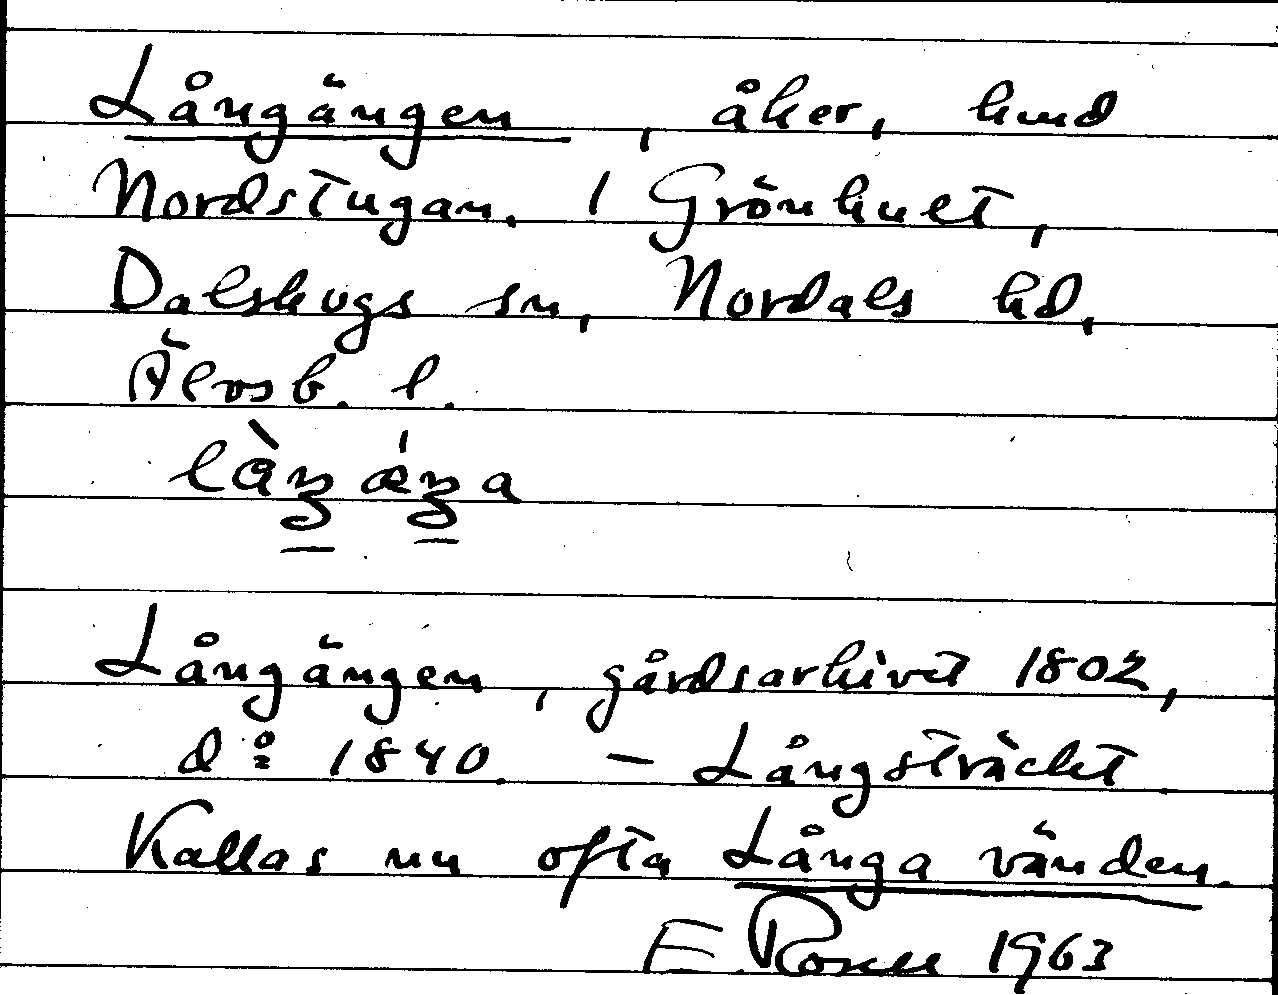 Långängen, åker, hmd
Nordstugan. 1 Grönhult,
Dalskogs sn, Nordals hd,
Älvsb. l.
làŋǽŋa
Långängen, gårdsarkivet 1802,
d:o 1840. – Långsträcket
Kallas nu ofta Långa vänden.
E. Rosell 1963